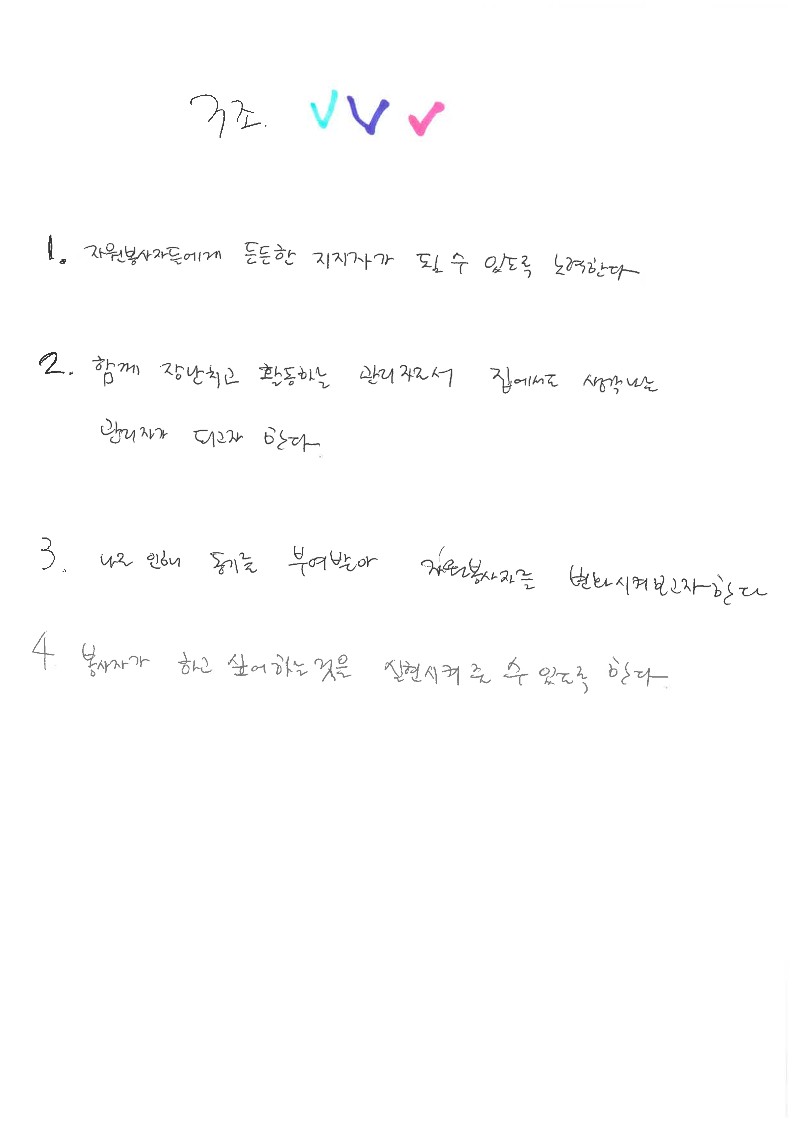 구조.
1. 자원봉사자들에게 든든한 지지자가 될 수 있도록 노력한다
2. 함께 장난치고 활동하는 관리자로서 집에서도 생각나는
관리자가 되고자 한다.
3. 나로 인해 동기를 부여받아 자원봉사자를 변화시켜보고자 한다
4 봉사자가 하고 싶어하는 것을 실현시켜 줄 수 있도록 한다.